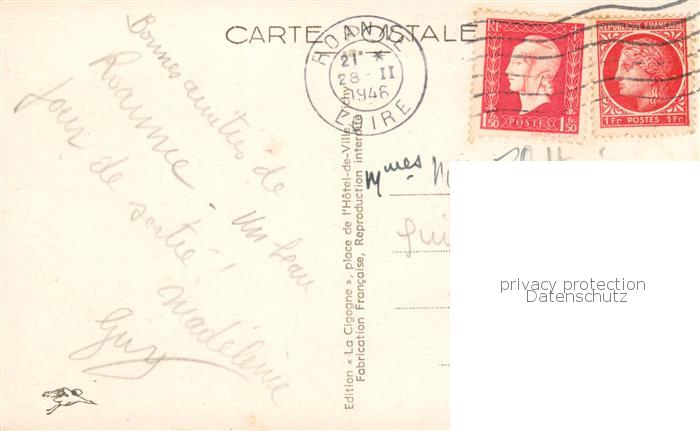 CARTE POSTALE
ROANNE
21 *
28 II
1946
LOIRE
RF
1 Fr 50 POSTES 1 Fr 50
REPUBLIQUE FRANÇAISE
1 Fr POSTES 1 Fr
Bonnes amitiés de
Roanne - Un beau
jour de sortie!
Madeleine
Guy
Edition « La Cigogne », place de l'Hôtel-de-Ville, Vichy
Fabrication Française, Reproduction interdite
Mmes
privacy protection
Datenschutz